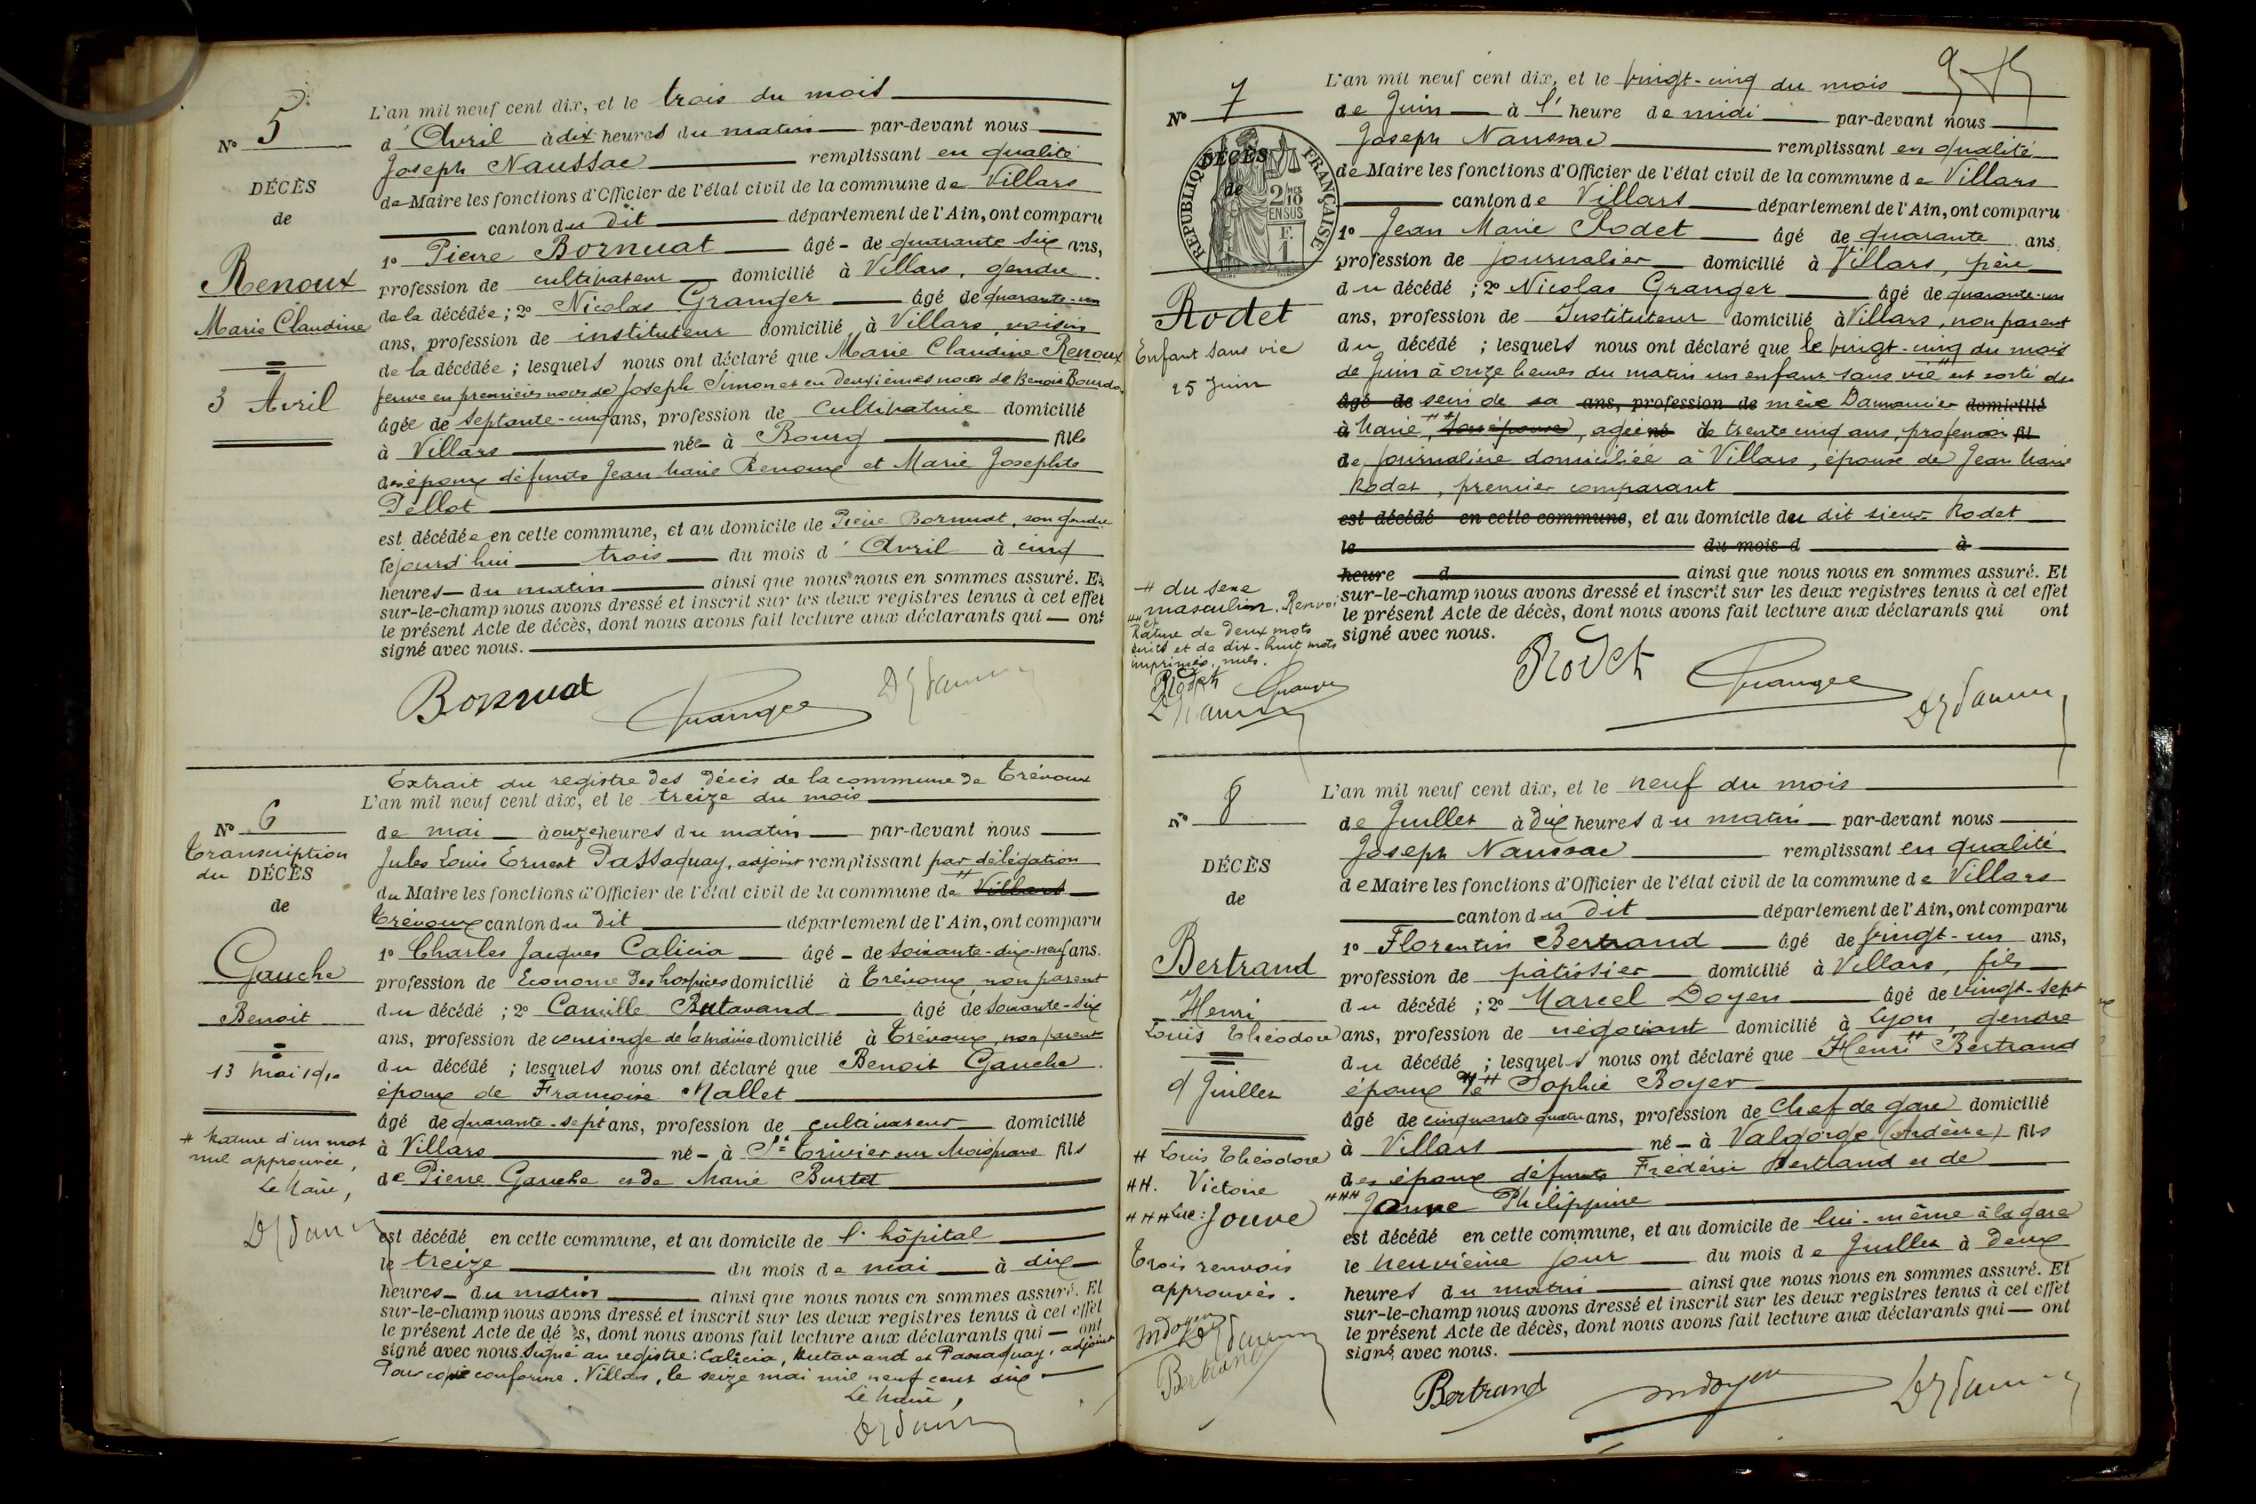 N° 5
DÉCÈS
de
Renoux
Marie Claudine
3 Avril
L'an mil neuf cent dix, et le trois du mois
d'Avril à dix heures du matin par-devant nous
Joseph Naussac remplissant en qualité
de Maire les fonctions d'Officier de l'état civil de la commune de Villars
canton du dit département de l'Ain, ont comparu
1° Pierre Bornuat âgé de quarante six ans,
profession de cultivateur domicilié à Villars, gendre
de la décédée ; 2° Nicolas Granger âgé de quarante-un
ans, profession de instituteur domicilié à Villars, voisin
de la décédée ; lesquels nous ont déclaré que Marie Claudine Renoux
veuve en premières noces de Joseph Simon et en deuxièmes noces de Benoit Bourdon
âgée de septante-cinq ans, profession de cultivatrice domicilié
à Villars née à Bourg fille
des époux défunts Jean Marie Renoux et Marie Josephte
Pellot
est décédée en cette commune, et au domicile de Pierre Bornuat, son gendre
lejourd'hui trois du mois d'Avril à cinq
heures du matin ainsi que nous nous en sommes assuré. Et
sur-le-champ nous avons dressé et inscrit sur les deux registres tenus à cet effet
le présent Acte de décès, dont nous avons fait lecture aux déclarants qui ont
signé avec nous.
Bornuat Granger
Extrait du registre des décès de la commune de Trévoux
N° 6
Transcription
du DÉCÈS
de
Gauche
Benoit
13 mai 1910
# Rature d'un mot
nul approuvée,
Le Maire,
L'an mil neuf cent dix, et le treize du mois
de mai à onze heures du matin par-devant nous
Jules Louis Ernest Passaquay, adjoint remplissant par délégation
du Maire les fonctions d'Officier de l'état civil de la commune de # Villars
Trévoux canton du dit département de l'Ain, ont comparu
1° Charles Jacques Calicia âgé de soixante-dix-neuf ans.
profession de Econome des hospices domicilié à Trévoux, non parent
du décédé ; 2° Camille Butavand âgé de soixante-six
ans, profession de concierge de la mairie domicilié à Trévoux, non parent
du décédé ; lesquels nous ont déclaré que Benoit Gauche
époux de Françoise Mallet
âgé de quarante-sept ans, profession de cultivateur domicilié
à Villars né à St Trivier sur Moignans fils
de Pierre Gauche et de Marie Burtet
est décédé en cette commune, et au domicile de l'hôpital
le treize du mois de mai à dix
heures du matin ainsi que nous nous en sommes assuré. Et
sur-le-champ nous avons dressé et inscrit sur les deux registres tenus à cet effet
le présent Acte de décès, dont nous avons fait lecture aux déclarants qui ont
signé avec nous. Signé au registre : Calicia, Butavand et Passaquay, adjoint
Pour copie conforme. Villars, le seize mai mil neuf cent dix
Le Maire,
N° 7
DÉCÈS
de
RÉPUBLIQUE FRANÇAISE
2/10 EN SUS
F. 1
Rodet
Enfant sans vie
25 Juin
# du sexe
masculin. Renvoi
## et
Rature de deux mots
écrits et de dix-huit mots
imprimés, nuls.
Rodet Granger
L'an mil neuf cent dix, et le vingt-cinq du mois
de Juin à l' heure de midi par-devant nous
Joseph Naussac remplissant en qualité
de Maire les fonctions d'Officier de l'état civil de la commune de Villars
canton de Villars département de l'Ain, ont comparu
1° Jean Marie Rodet âgé de quarante ans,
profession de journalier domicilié à Villars, père
du décédé ; 2° Nicolas Granger âgé de quarante-un
ans, profession de Instituteur domicilié à Villars, non parent
du décédé ; lesquels nous ont déclaré que le vingt-cinq du mois
de Juin à onze heures du matin un enfant sans vie # est sorti du
âgé de sein de sa ans, profession de mère Damancier domicilié
à Marie, ## son épouse, agée né de trente cinq ans, profession fil
de journalière domiciliée à Villars, épouse de Jean Marie
Rodet, premier comparant
est décédé en cette commune, et au domicile du dit sieur Rodet
le du mois d à
heure d ainsi que nous nous en sommes assuré. Et
sur-le-champ nous avons dressé et inscrit sur les deux registres tenus à cet effet
le présent Acte de décès, dont nous avons fait lecture aux déclarants qui ont
signé avec nous.
Rodet Granger
N° 8
DÉCÈS
de
Bertrand
Henri
Louis Théodore
9 Juillet
# Louis Théodore
##. Victoire
### Jouve
Trois renvois
approuvés.
MDoyen
Bertrand
L'an mil neuf cent dix, et le neuf du mois
de Juillet à dix heures du matin par-devant nous
Joseph Naussac remplissant en qualité
de Maire les fonctions d'Officier de l'état civil de la commune de Villars
canton du dit département de l'Ain, ont comparu
1° Florentin Bertrand âgé de vingt-un ans,
profession de pâtissier domicilié à Villars, fils
du décédé ; 2° Marcel Doyen âgé de vingt-sept
ans, profession de négociant domicilié à Lyon, gendre
du décédé ; lesquels nous ont déclaré que Henri # Bertrand
époux de ## Sophie Boyer
âgé de cinquante quatre ans, profession de Chef de gare domicilié
à Villars né à Valgorge (Ardèche) fils
des époux défunts Frédéric Bertrand et de
### Jouve Philippine
est décédé en cette commune, et au domicile de lui-même à la gare
le neuvième jour du mois de Juillet à deux
heures du matin ainsi que nous nous en sommes assuré. Et
sur-le-champ nous avons dressé et inscrit sur les deux registres tenus à cet effet
le présent Acte de décès, dont nous avons fait lecture aux déclarants qui ont
signé avec nous.
Bertrand MDoyen